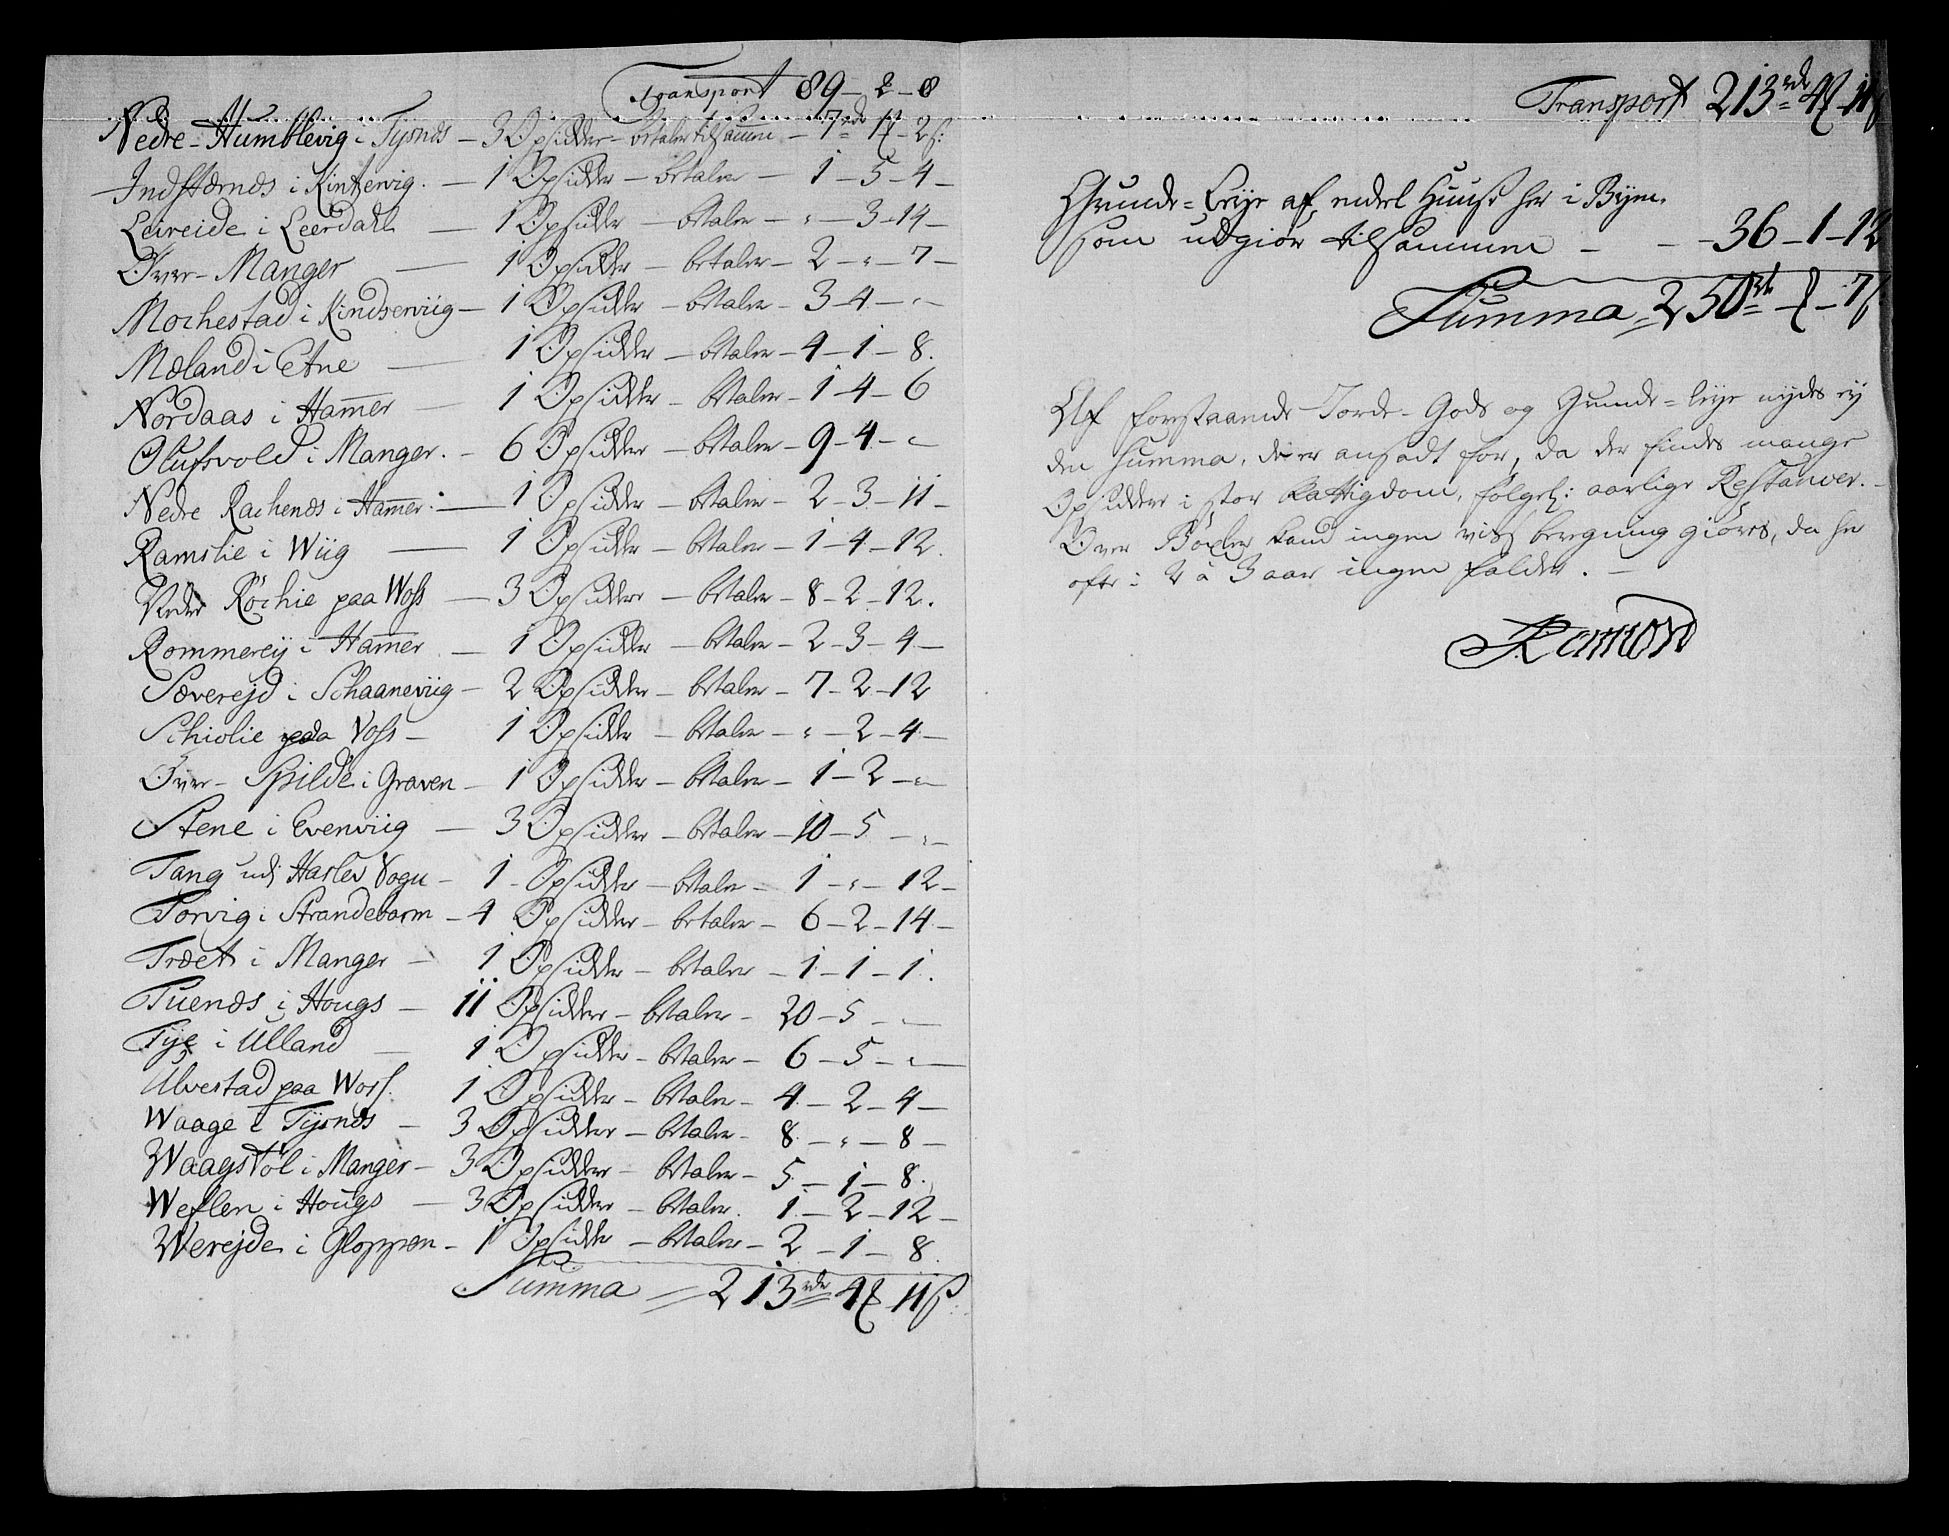 Transport 89 - 2 - 8
Nedre-Humblevig i Tysnds - 3 Opsiddere - betaler tilsamme - 7 rdr 1 - 2 s:
Indstærnds i Kintzervig. - 1 Opsidder - betaler - 1 - 5 - 4 -
Leireide i Leerdahl - 1 Opsidder - betaler - " - 3 - 14 -
Over-Manger - 1 Opsidder - betaler - 2 - " - 7 -
Mochestad i Kindserviig - 1 Opsidder - betaler - 3 - 4 - " -
Mæland i Etne - 1 Opsidder - betaler - 4 - 1 - 8.
Nordaas i Hamer - 1 Opsidder - betaler - 1 - 4 - 6
Olufsvold i Manger. - 6 Opsidder - betaler - 9 - 4 - "
Nedre Rachends i Hamer. - 1 Opsidder - betaler - 2 - 3 - 11 -
Ramslie i Wiig - 1 Opsidder - betaler - 1 - 4 - 12.
Nedr Röchie paa Woss - 3 Opsiddere - betaler - 8 - 2 - 12.
Rommereij i Hamer - 1 Opsidder - betaler - 2 - 3 - 4 -
Sæverejd i Schaaneviig - 2 Opsidder - betaler - 7 - 2 - 12
Schiolie paa Voss - 1 Opsidder - betaler - " - 2 - 4 -
Over-Spilde i Graven - 1 Opsidder - betaler - 1 - 2 - "
Stene i Evenviig - 3 Opsidder - betaler - 10 - 5 - " -
Tang udj Harlev Vogn - 1 - Opsidder - betaler - 1 - " - 12 -
Torvig i Strandebarm - 4 Opsidder - betaler - 6 - 2 - 14 -
Træet i Manger - 1 Opsidder - betaler - 1 - 1 - 1.
Tuends i Hougs - 11 Opsidder - betaler - 20 - 5 - "
Tye i Ulland - 1 Opsidder - betaler - 6 - 5 - "
Ulvestad paa Wors. 1 Opsidder - betaler - 4 - 2 - 4 -
Waage i Tysnds - 3 Opsiddere - betaler - 8 - " - 8 -
Waagstöl i Manger - 3 Opsidder - betaler - 5 - 1 - 8.
Weflen i Hougs - 3 Opsidder - betaler. 1 - 2 - 12 -
Werejde i Gloppen - 1 Opsidder - betaler - 2 - 1 - 8.
Summa = 213 rdr 4 - 11 s:
Transport 213 rdr 4 - 11 s
Grunde-Leje af endel Huuse her i Byen.
som udgiør tilsammen - - 36 - 1 - 12
Summa = 250 rd - - 7 s
Af forstaaende Jorde-Gods og Grunde-leje nydes ej
den Summa, de er ansadt for, da der findes mange
Opsiddere i stor Fattigdom, følgel: aarlige Restancer. -
Over Böxler kand ingen viss beregning giöres, da her
ofte i 2 à 3 aar ingen falder. -